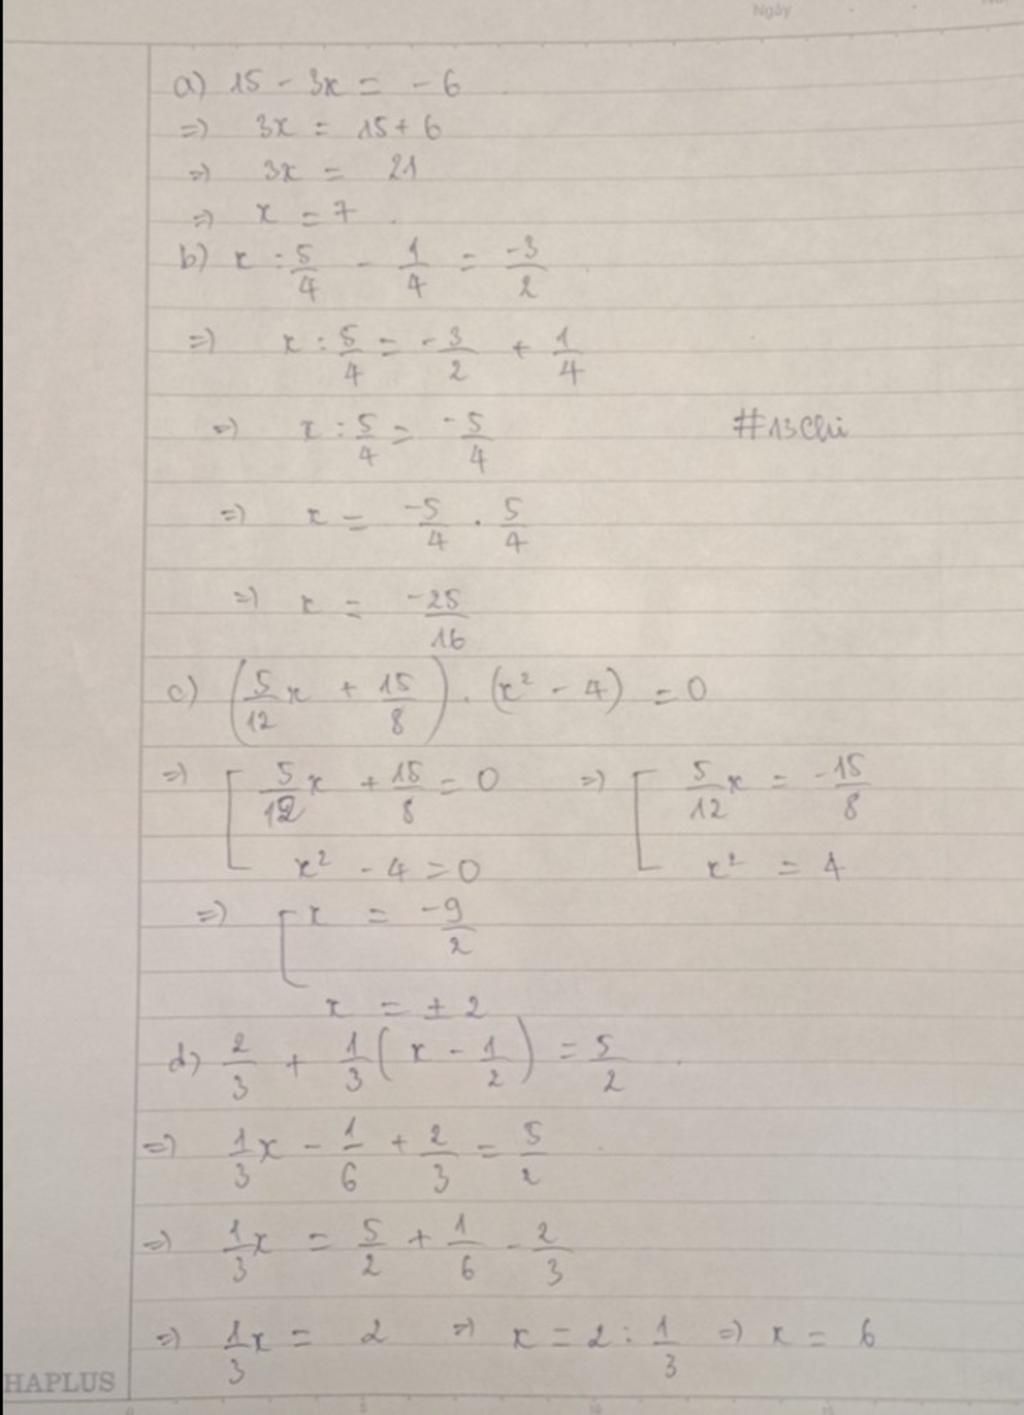 Ngày
a) 15 - 3x = - 6
=> 3x = 15 + 6
=> 3x = 21
=> x = 7 .
b) x : 5/4 - 1/4 = -3/2
=> x : 5/4 = -3/2 + 1/4
=> x : 5/4 = -5/4
#13Chi
=> x = -5/4 . 5/4
=> x = -25/16
c) (5/12 x + 15/8) . (x² - 4) = 0
=> [ 5/12 x + 15/8 = 0 => [ 5/12 x = -15/8
x² - 4 = 0 x² = 4
=> [ x = -9/2
x = ± 2
d) 2/3 + 1/3 ( x - 1/2 ) = 5/2
=> 1/3 x - 1/6 + 2/3 = 5/2
=> 1/3 x = 5/2 + 1/6 - 2/3
=> 1/3 x = 2 => x = 2 : 1/3 => x = 6
HAPLUS